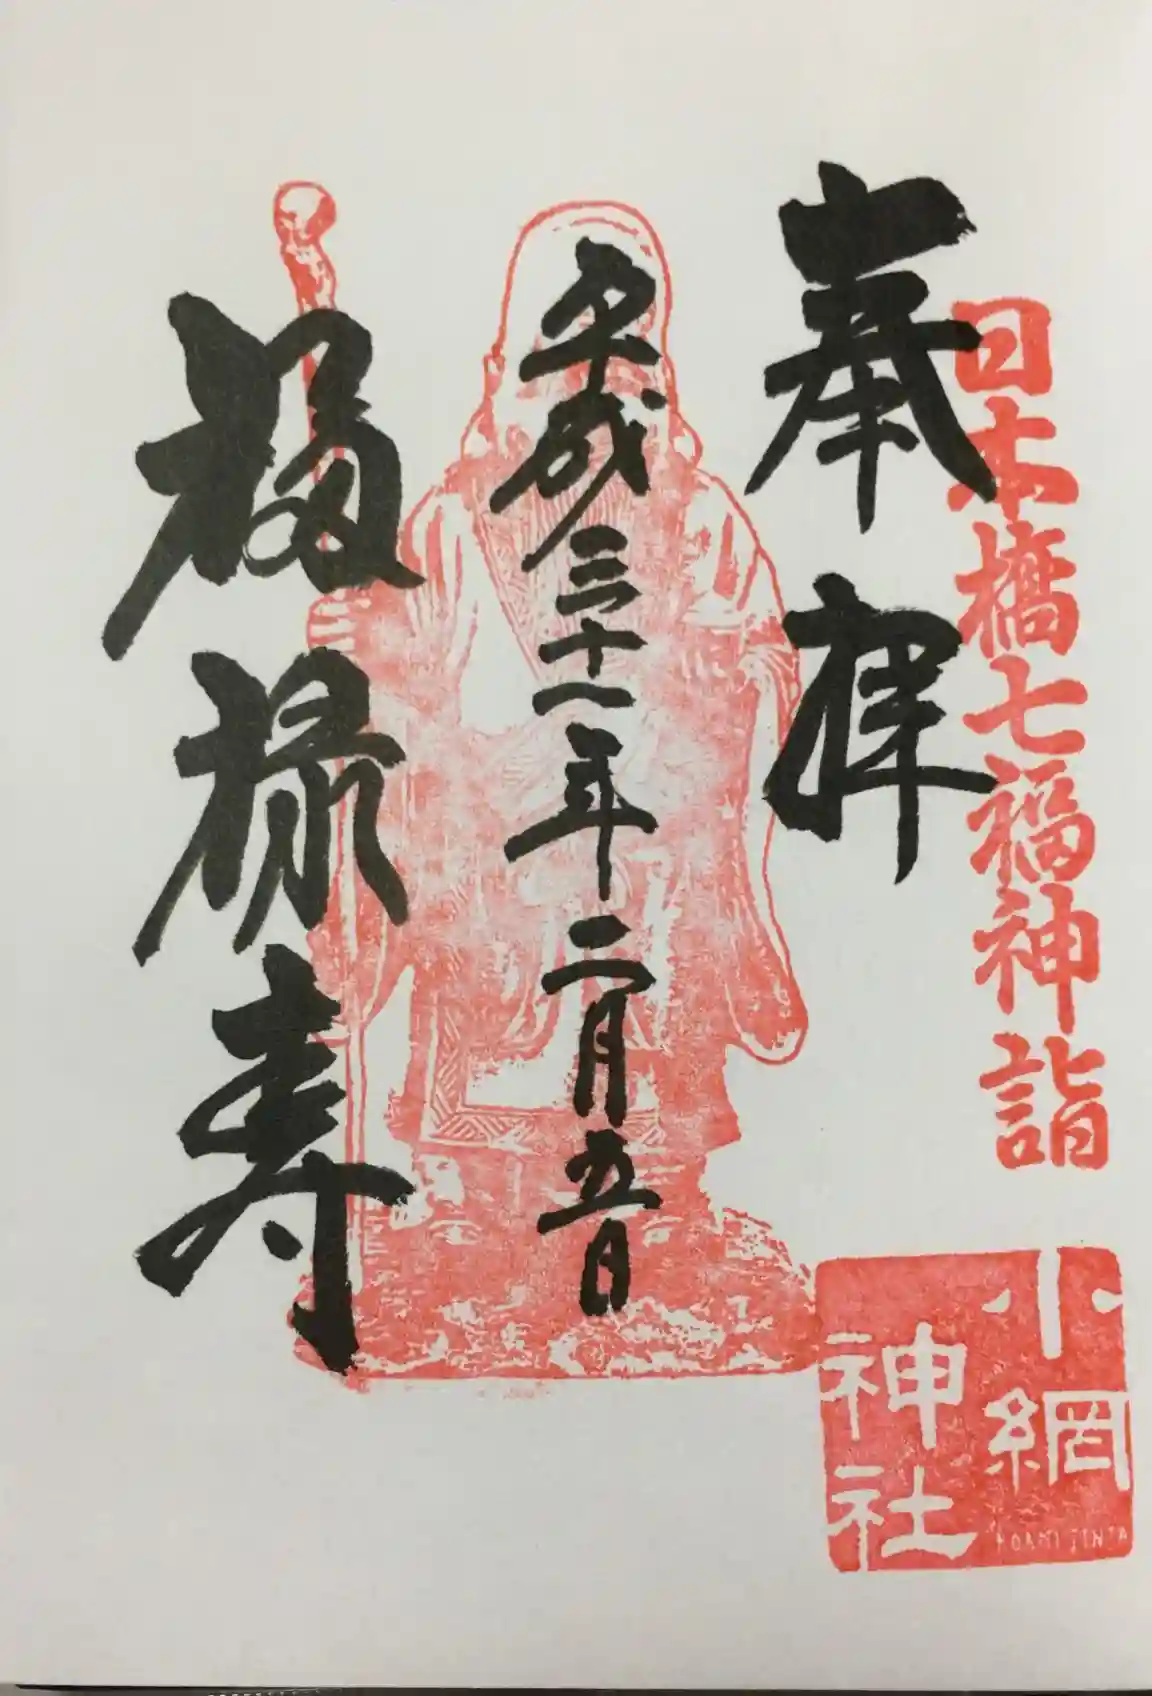 日本橋七福神詣
奉拝
平成三十一年二月五日
福禄寿
小網
神社
KOAMI JINJA